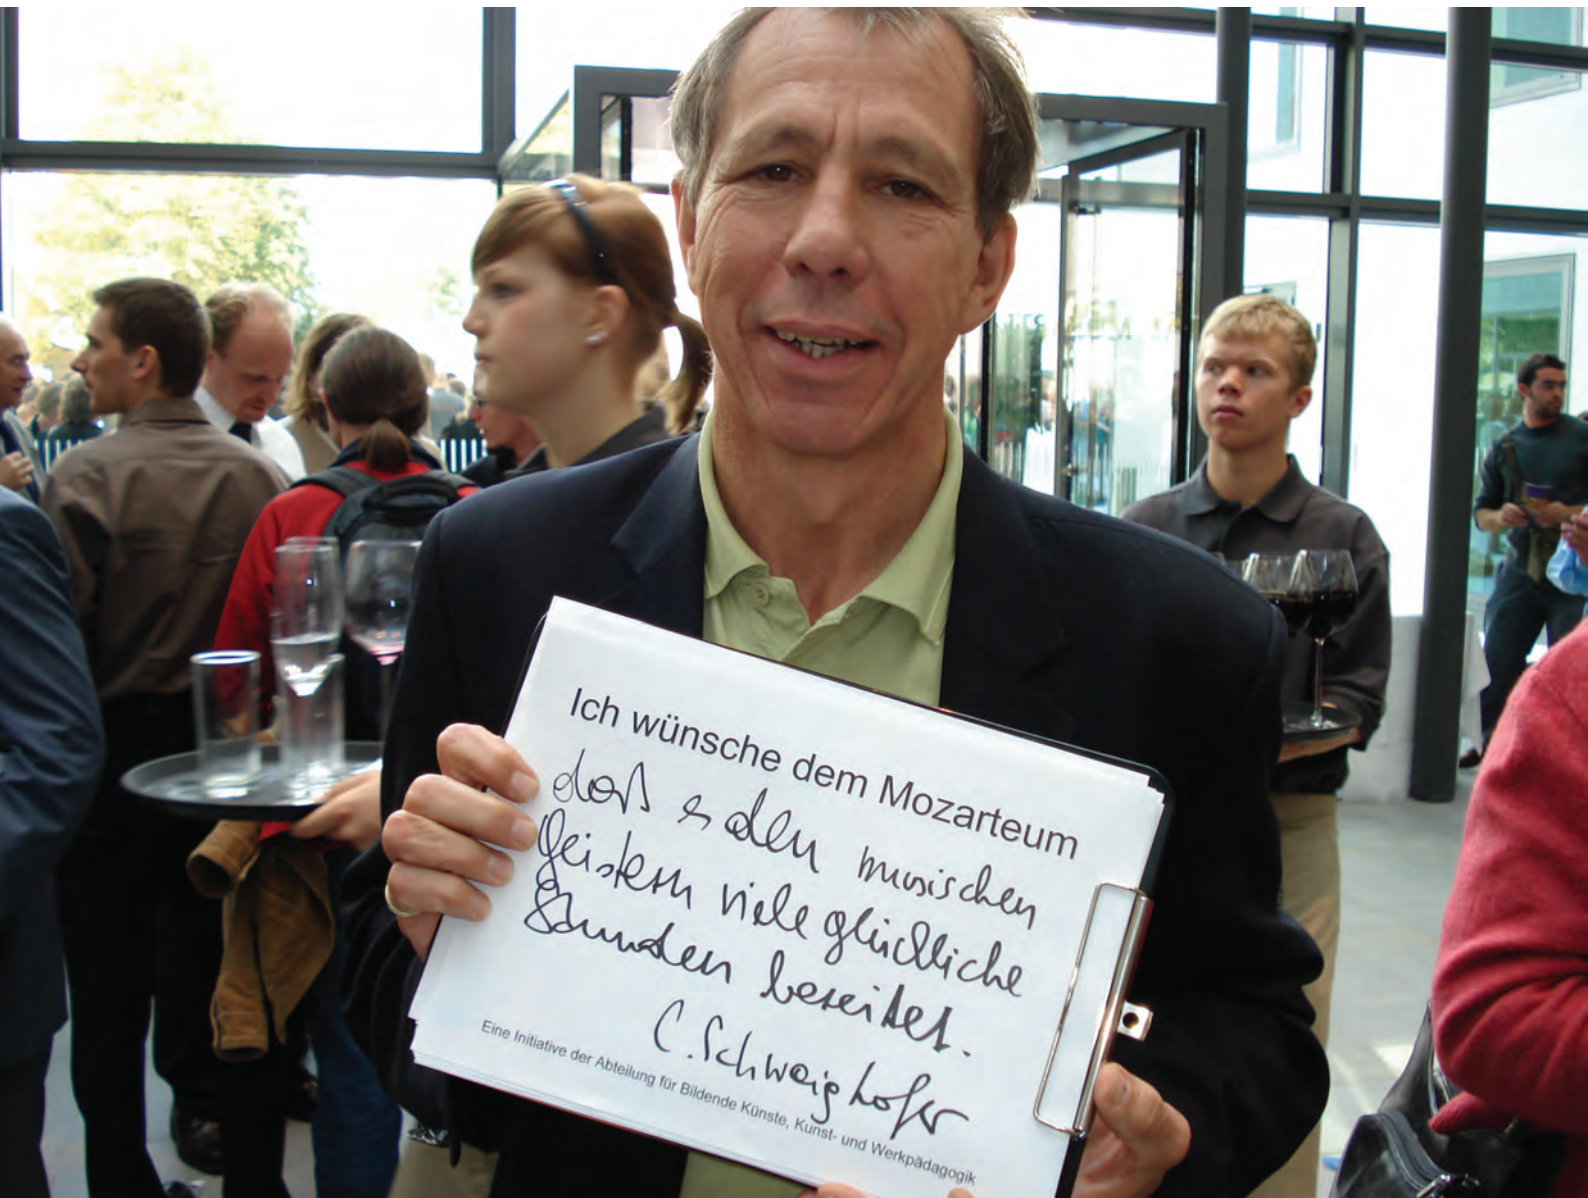 Ich wünsche dem Mozarteum
daß es allen musischen
Geistern viele glückliche
Stunden bereitet.
C. Schweighofer
Eine Initiative der Abteilung für Bildende Künste, Kunst- und Werkpädagogik